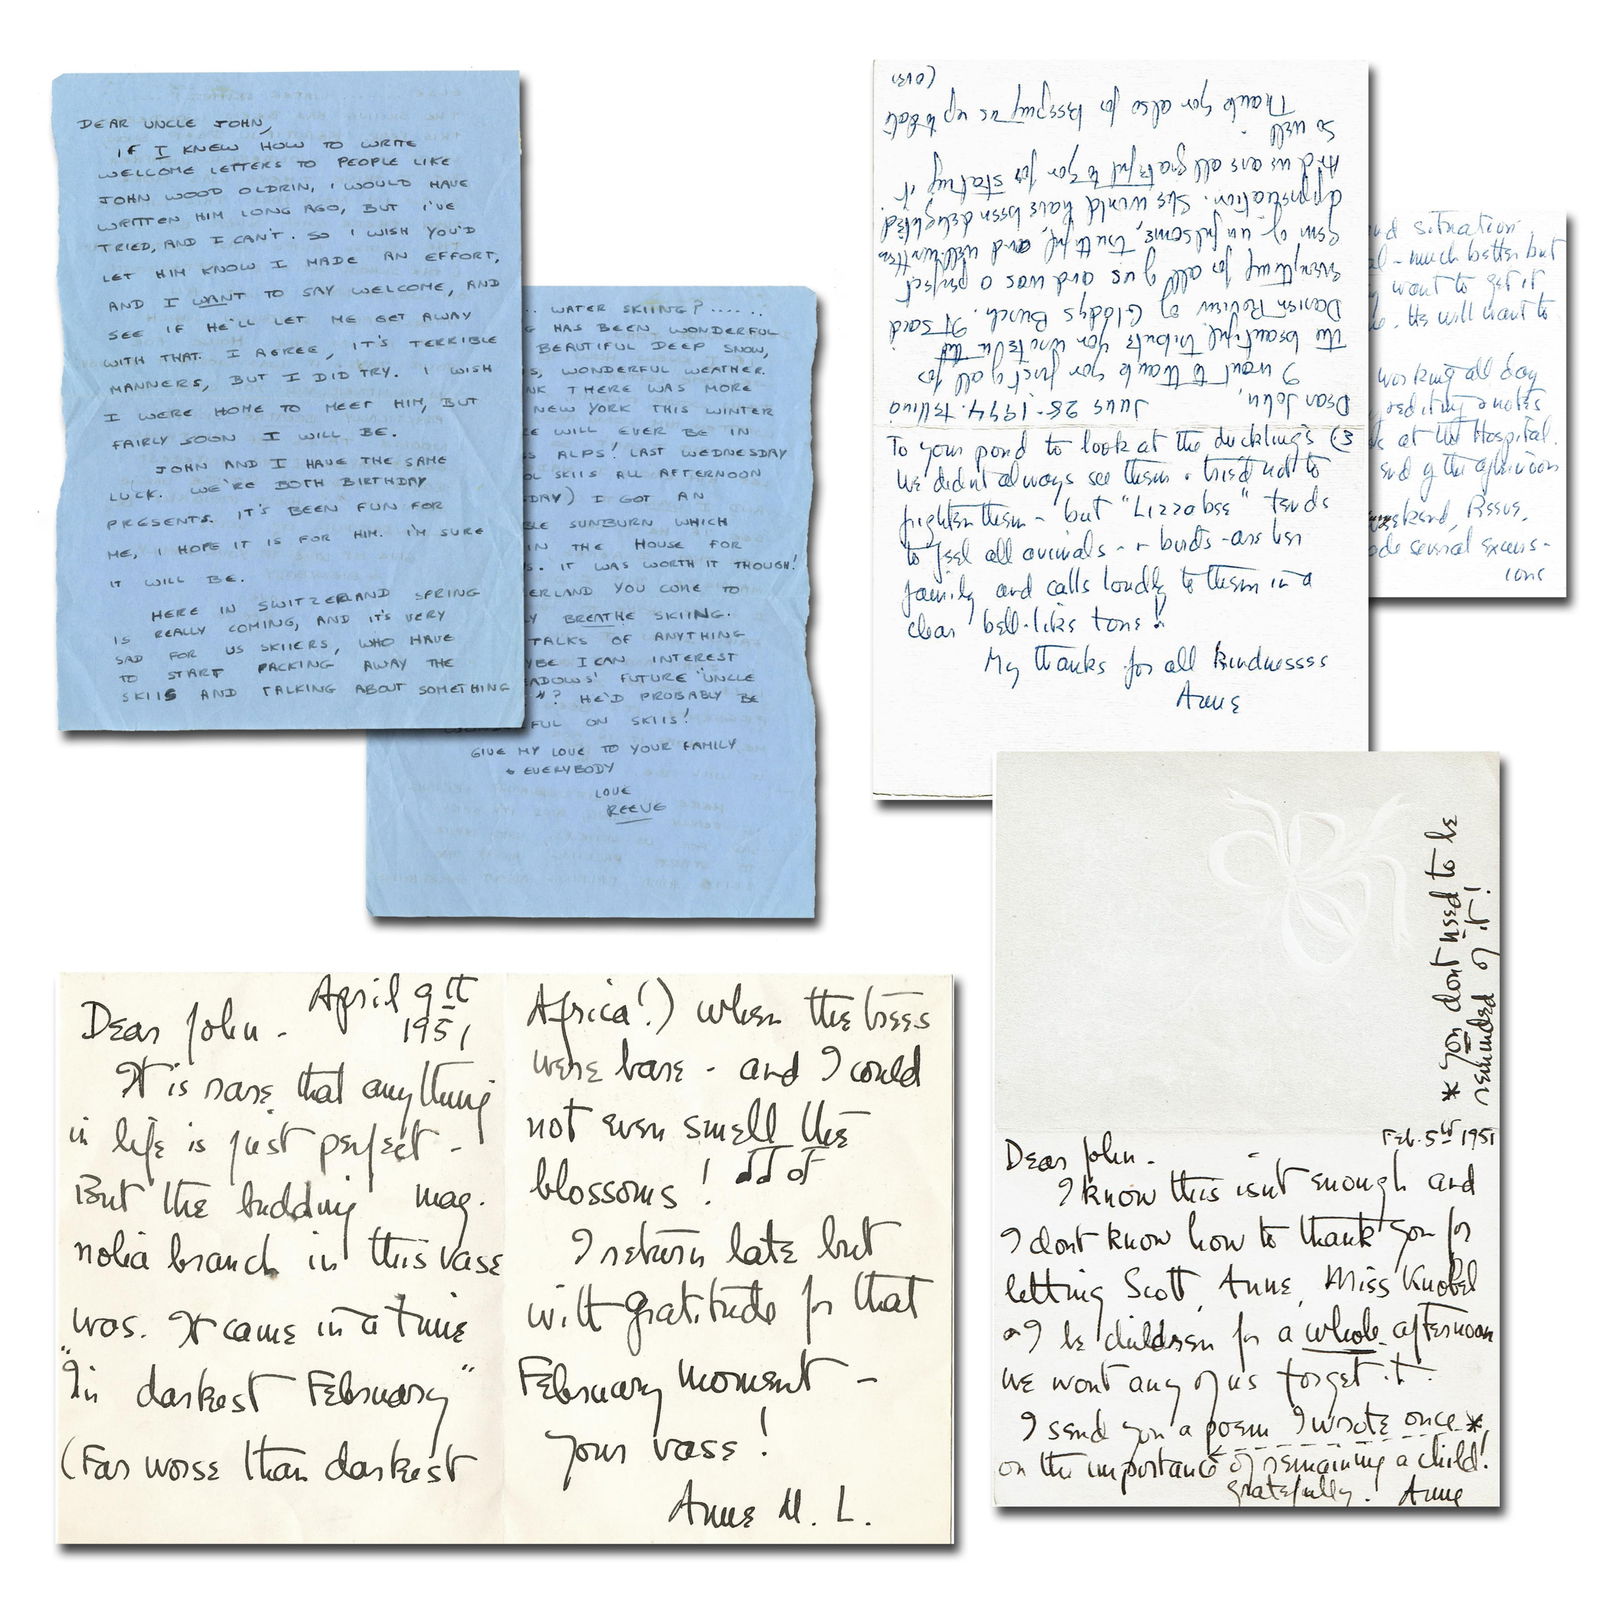 DEAR UNCLE JOHN,
IF I KNEW HOW TO WRITE
WELCOME LETTERS TO PEOPLE LIKE
JOHN WOOD OLDRIN, I WOULD HAVE
WRITTEN HIM LONG AGO, BUT I'VE
TRIED, AND I CAN'T. SO I WISH YOU'D
LET HIM KNOW I MADE AN EFFORT,
AND I WANT TO SAY WELCOME, AND
SEE IF HE'LL LET ME GET AWAY
WITH THAT. I AGREE, IT'S TERRIBLE
MANNERS, BUT I DID TRY. I WISH
I WERE HOME TO MEET HIM, BUT
FAIRLY SOON I WILL BE.
JOHN AND I HAVE THE SAME
LUCK. WE'RE BOTH BIRTHDAY
PRESENTS. IT'S BEEN FUN FOR
ME, I HOPE IT IS FOR HIM. I'M SURE
IT WILL BE.
HERE IN SWITZERLAND SPRING
IS REALLY COMING, AND IT'S VERY
SAD FOR US SKIIERS, WHO HAVE
TO START PACKING AWAY THE
SKIIS AND TALKING ABOUT SOMETHING
.. WATER SKIING? ......
G HAS BEEN WONDERFUL
BEAUTIFUL DEEP SNOW,
S, WONDERFUL WEATHER.
NK THERE WAS MORE
NEW YORK THIS WINTER
RE WILL EVER BE IN
S ALPS! LAST WEDNESDAY
OL SKIIS ALL AFTERNOON
DAY) I GOT AN
BLE SUNBURN WHICH
IN THE HOUSE FOR
S. IT WAS WORTH IT THOUGH!
ERLAND YOU COME TO
LY BREATHE SKIING.
TALKS OF ANYTHING
YBE I CAN INTEREST
EADOWS' FUTURE "UNCLE
"? HE'D PROBABLY BE
FUL ON SKIIS!
GIVE MY LOVE TO YOUR FAMILY
& EVERYBODY
LOVE
REEVE
Dear John, June 28-1994. Tellina
I want to thank you first of all for
the beautiful tribute you wrote in the
Darien Review of Gladys Burch. It said
everything for all of us and was a perfect
gem of unfulsome, truthful, and well written
appreciation. She would have been delighted.
And we are all grateful to you for stating it
so well.
Thank you also for keeping us up to date
(over)
to your pond to look at the ducklings (3
We didn't always see them & tried not to
frighten them - but "Lizzabee" tends
to feel all animals - & birds - are her
family and calls loudly to them in a
clear bell-like tone!
My thanks for all kindnesses
Anne
nd situation
al - much better but
want to get it
he. He will want to
working all day
k at the Hospital.
end of the afternoon
weekend, Reeve,
ade several excurs-
ions
* You dont need to be
reminded of it!
Feb. 5th 1951
Dear John.
I know this isnt enough and
I dont know how to thank you for
letting Scott, Anne, Miss Knobel
& I be children for a whole afternoon
We wont any of us forget it.
I send you a poem I wrote once *,
on the importance of remaining a child!
gratefully! Anne
April 9th
1951
Dear John -
It is rare that anything
in life is just perfect -
But the budding mag-
nolia branch in this vase
was. It came in a time
"In darkest February"
(Far worse than darkest
Africa!) when the trees
were bare - and I could
not even smell the
blossoms!
I return late but
with gratitude for that
February moment -
your vase!
Anne M. L.